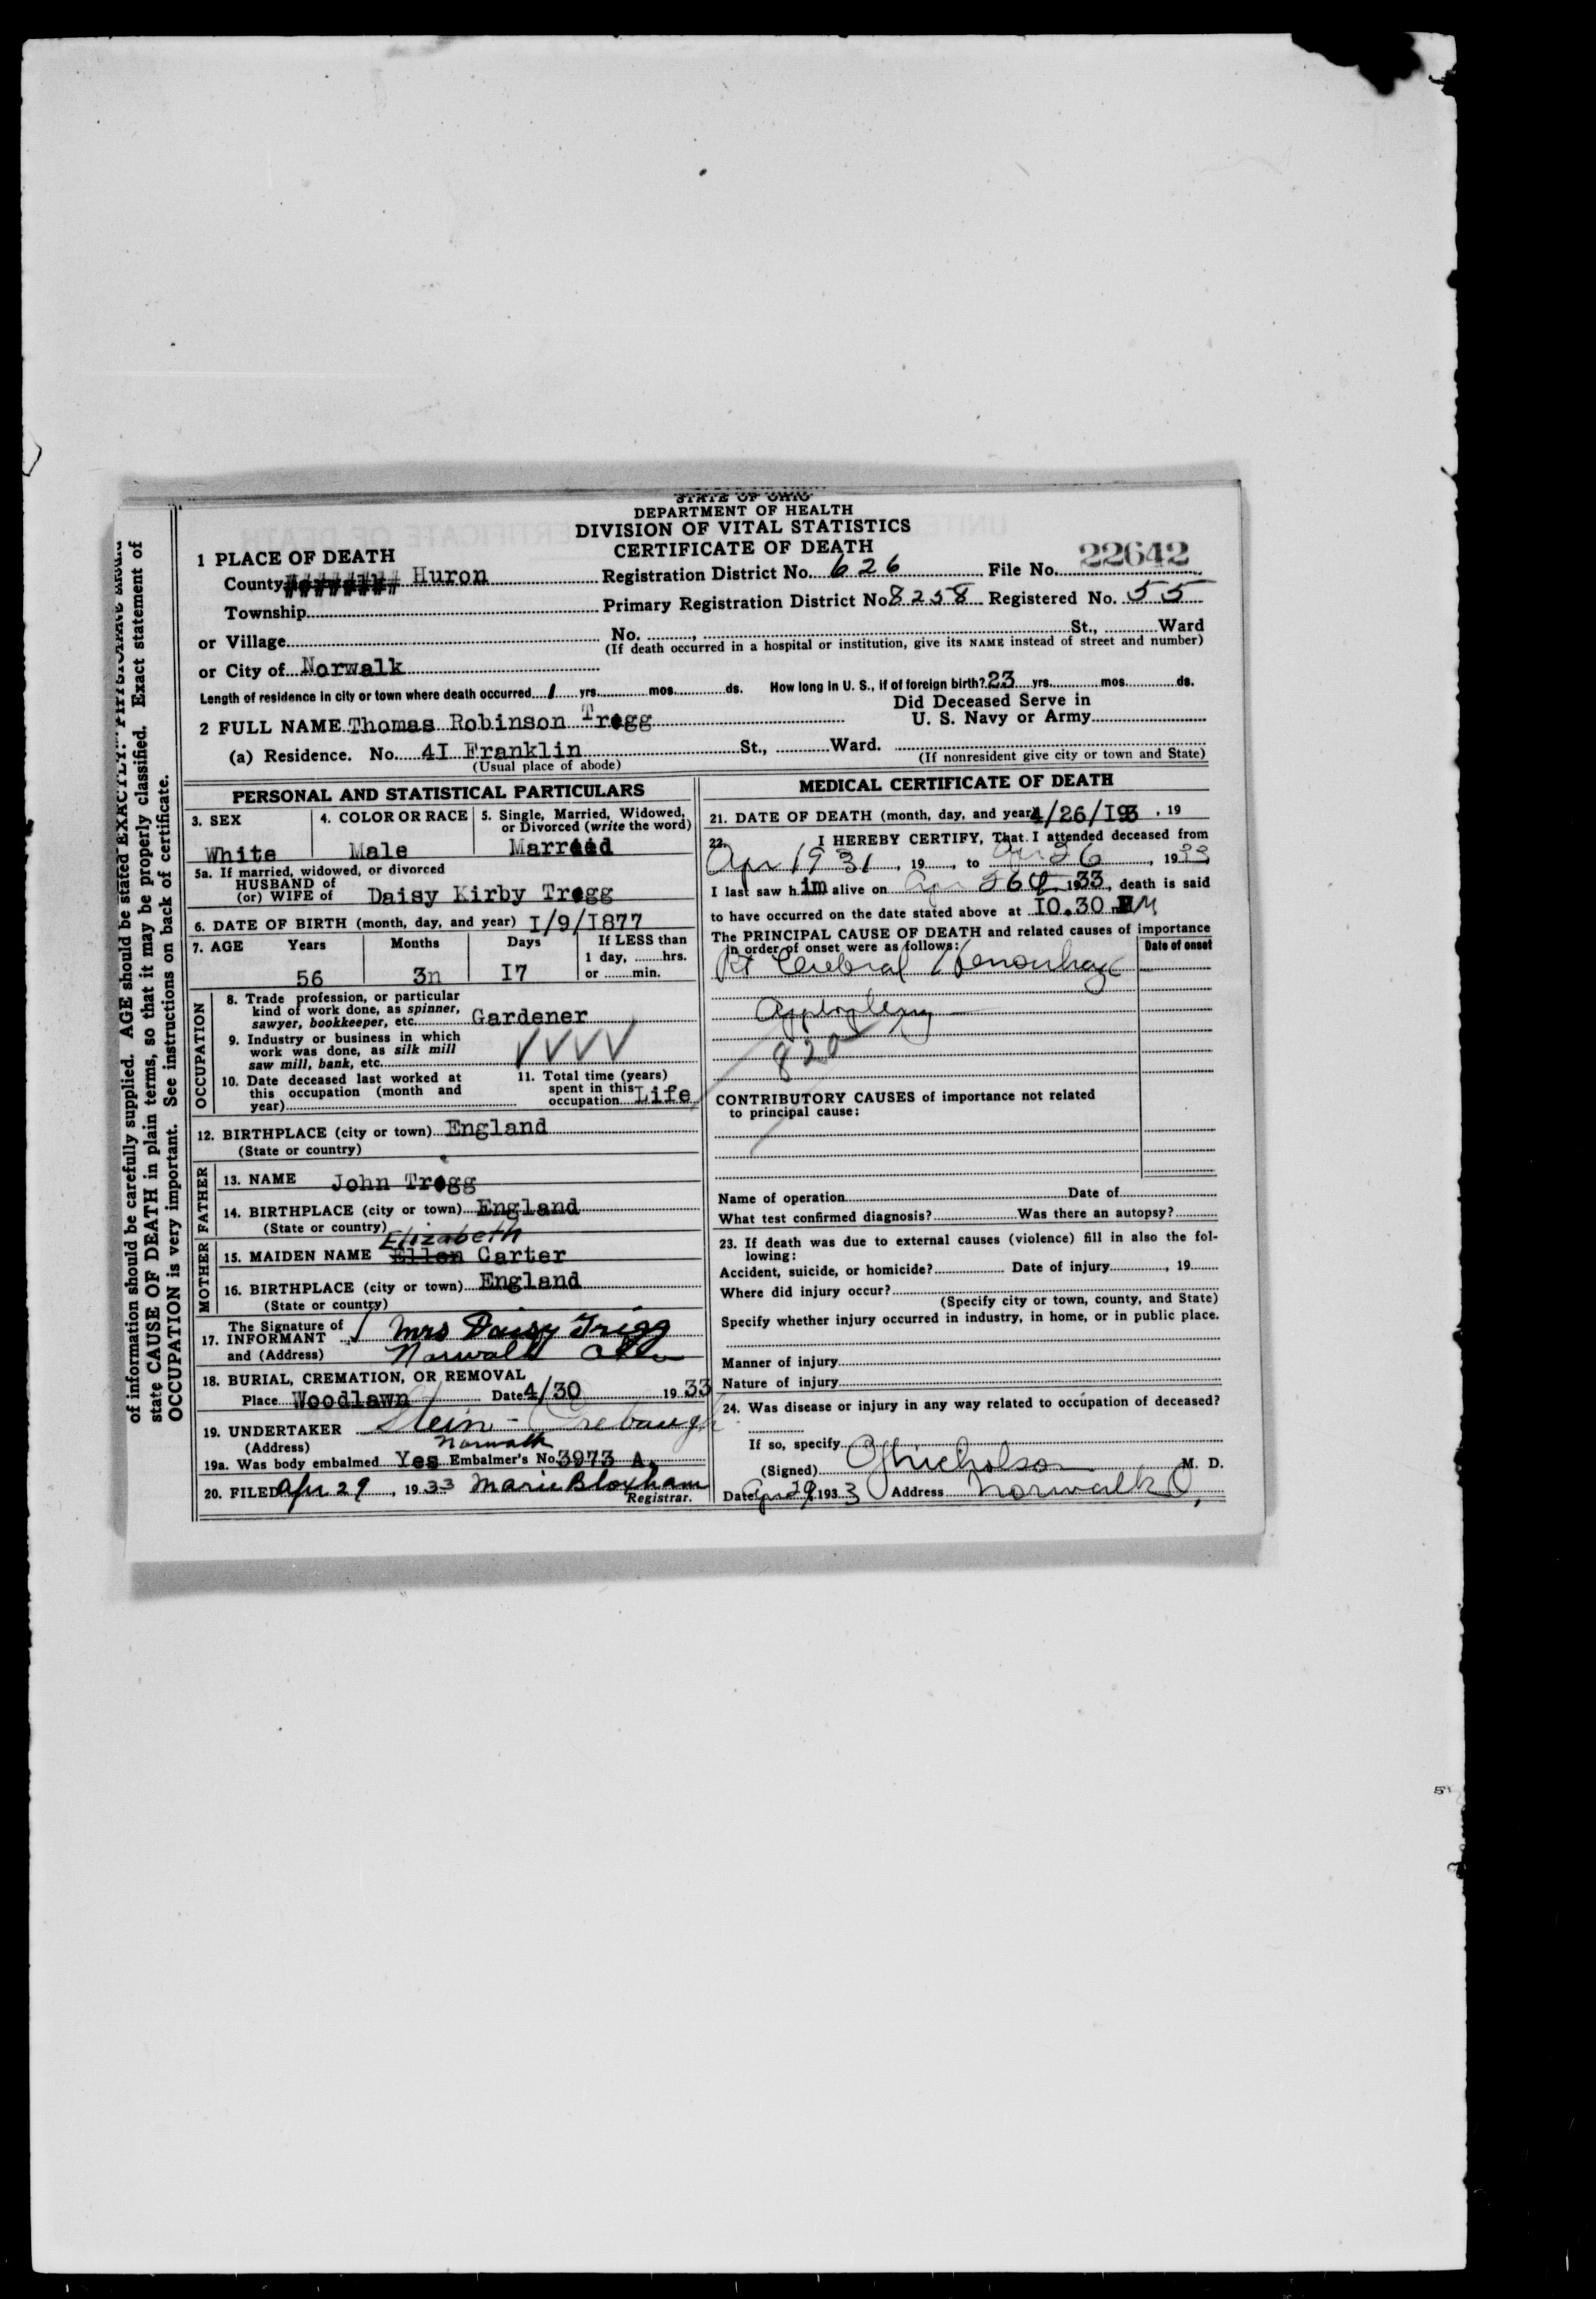 STATE OF OHIO
DEPARTMENT OF HEALTH
DIVISION OF VITAL STATISTICS
CERTIFICATE OF DEATH
22642
1 PLACE OF DEATH
County Huron Registration District No. 626 File No.
Township Primary Registration District No. 8258 Registered No. 55
or Village No. , St., Ward
(If death occurred in a hospital or institution, give its NAME instead of street and number)
or City of Norwalk
Length of residence in city or town where death occurred 1 yrs. mos. ds. How long in U. S., if of foreign birth? 23 yrs. mos. ds.
Did Deceased Serve in
U. S. Navy or Army
2 FULL NAME Thomas Robinson Tregg
(a) Residence. No. 4I Franklin St., Ward.
(Usual place of abode) (If nonresident give city or town and State)
PERSONAL AND STATISTICAL PARTICULARS
3. SEX 4. COLOR OR RACE 5. Single, Married, Widowed, or Divorced (write the word)
White Male Married
5a. If married, widowed, or divorced
HUSBAND of
(or) WIFE of Daisy Kirby Tregg
6. DATE OF BIRTH (month, day, and year) I/9/I877
7. AGE Years Months Days If LESS than
1 day, hrs.
56 3n I7 or min.
OCCUPATION
8. Trade profession, or particular
kind of work done, as spinner,
sawyer, bookkeeper, etc. Gardener
9. Industry or business in which
work was done, as silk mill
saw mill, bank, etc.
10. Date deceased last worked at
this occupation (month and
year)
11. Total time (years)
spent in this
occupation Life
12. BIRTHPLACE (city or town) England
(State or country)
FATHER
13. NAME John Tregg
14. BIRTHPLACE (city or town) England
(State or country)
MOTHER
Elizabeth
15. MAIDEN NAME Ellen Carter
16. BIRTHPLACE (city or town) England
(State or country)
The Signature of
17. INFORMANT Mrs Daisy Trigg
and (Address) Norwalk Ohio
18. BURIAL, CREMATION, OR REMOVAL
Place Woodlawn Date 4/30 1933
19. UNDERTAKER Stein-
(Address) Norwalk
19a. Was body embalmed Yes Embalmer's No. 3973 A.
20. FILED Apr 29, 1933 Marie Bloxham
Registrar.
MEDICAL CERTIFICATE OF DEATH
21. DATE OF DEATH (month, day, and year) 4/26/I93 , 19
22. I HEREBY CERTIFY, That I attended deceased from
Apr 19 31, 19 , to 26, 1933
I last saw him alive on 26 1933, death is said
to have occurred on the date stated above at I0.30 M
The PRINCIPAL CAUSE OF DEATH and related causes of importance
in order of onset were as follows: Date of onset
Rt Cerebral Hemorrhage
Apoplexy
820
CONTRIBUTORY CAUSES of importance not related
to principal cause:
Name of operation Date of
What test confirmed diagnosis? Was there an autopsy?
23. If death was due to external causes (violence) fill in also the fol-
lowing:
Accident, suicide, or homicide? Date of injury , 19
Where did injury occur?
(Specify city or town, county, and State)
Specify whether injury occurred in industry, in home, or in public place.
Manner of injury
Nature of injury
24. Was disease or injury in any way related to occupation of deceased?
If so, specify
(Signed) Nicholson M. D.
Date Apr 29, 1933 Address Norwalk O,
of information should be carefully supplied. AGE should be stated EXACTLY. Exact statement of
state CAUSE OF DEATH in plain terms, so that it may be properly classified.
OCCUPATION is very important. See instructions on back of certificate.